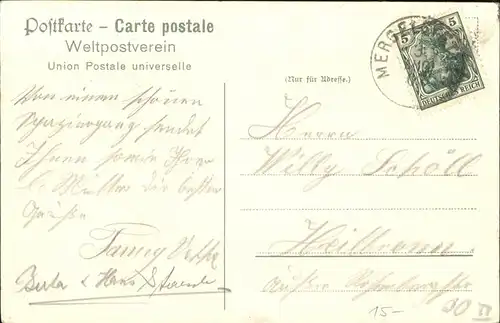 Postkarte – Carte postale
Weltpostverein
Union Postale universelle
(Nur für Adresse.)
MERGEL
5 5
DEUTSCHES REICH
Von einem schönen
Spaziergang sendet
Ihnen sowie Ihrer
l. Mutter die besten
Grüße
Berta & Hans
Herrn
Willy Schöll
Heilbronn
15-